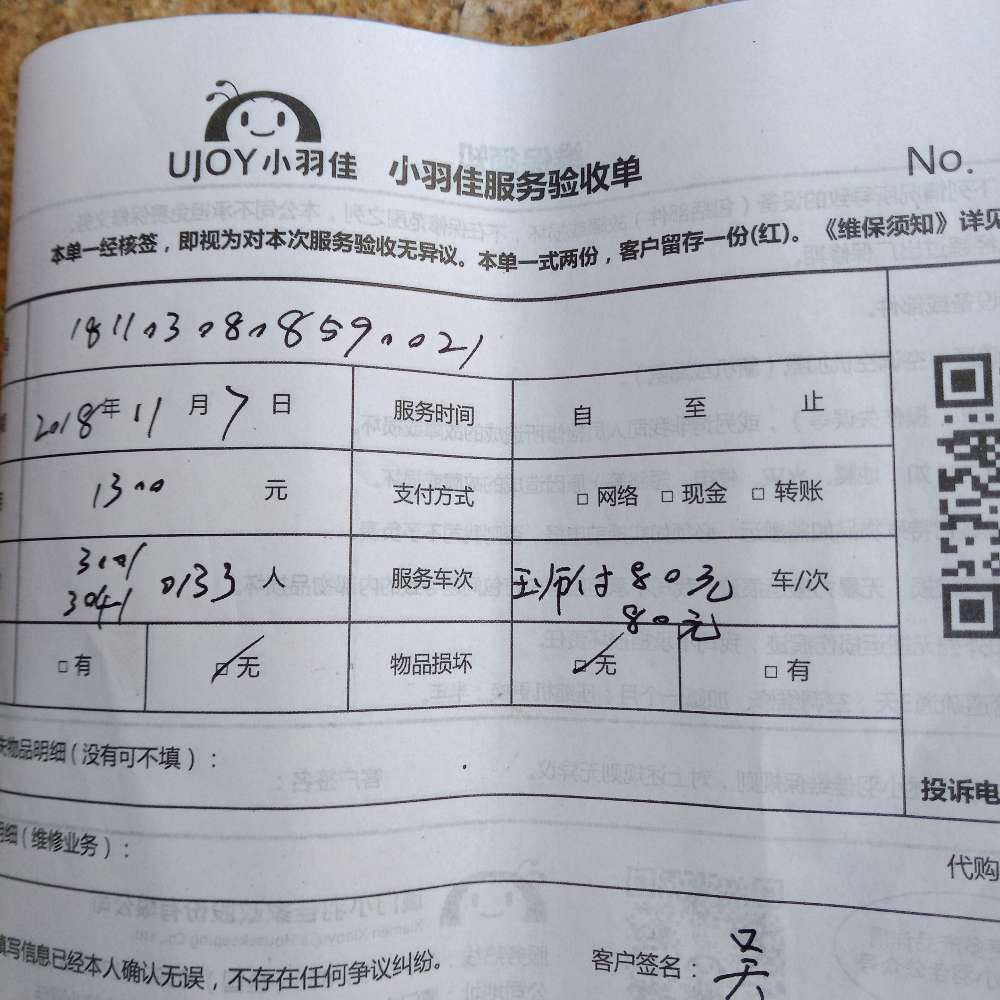 UJOY小羽佳 小羽佳服务验收单
No.
本单一经核签，即视为对本次服务验收无异议。本单一式两份，客户留存一份(红)。《维保须知》详见
2018年11月7日 服务时间 自 至 止
1300 元 支付方式 □网络 □现金 □转账
3001
3041 0133 人 服务车次 80元 车/次
80元
□有 □无 物品损坏 □无 □有
物品明细(没有可不填)：
投诉电
明细(维修业务)：
代购
填写信息已经本人确认无误，不存在任何争议纠纷。
客户签名：吴